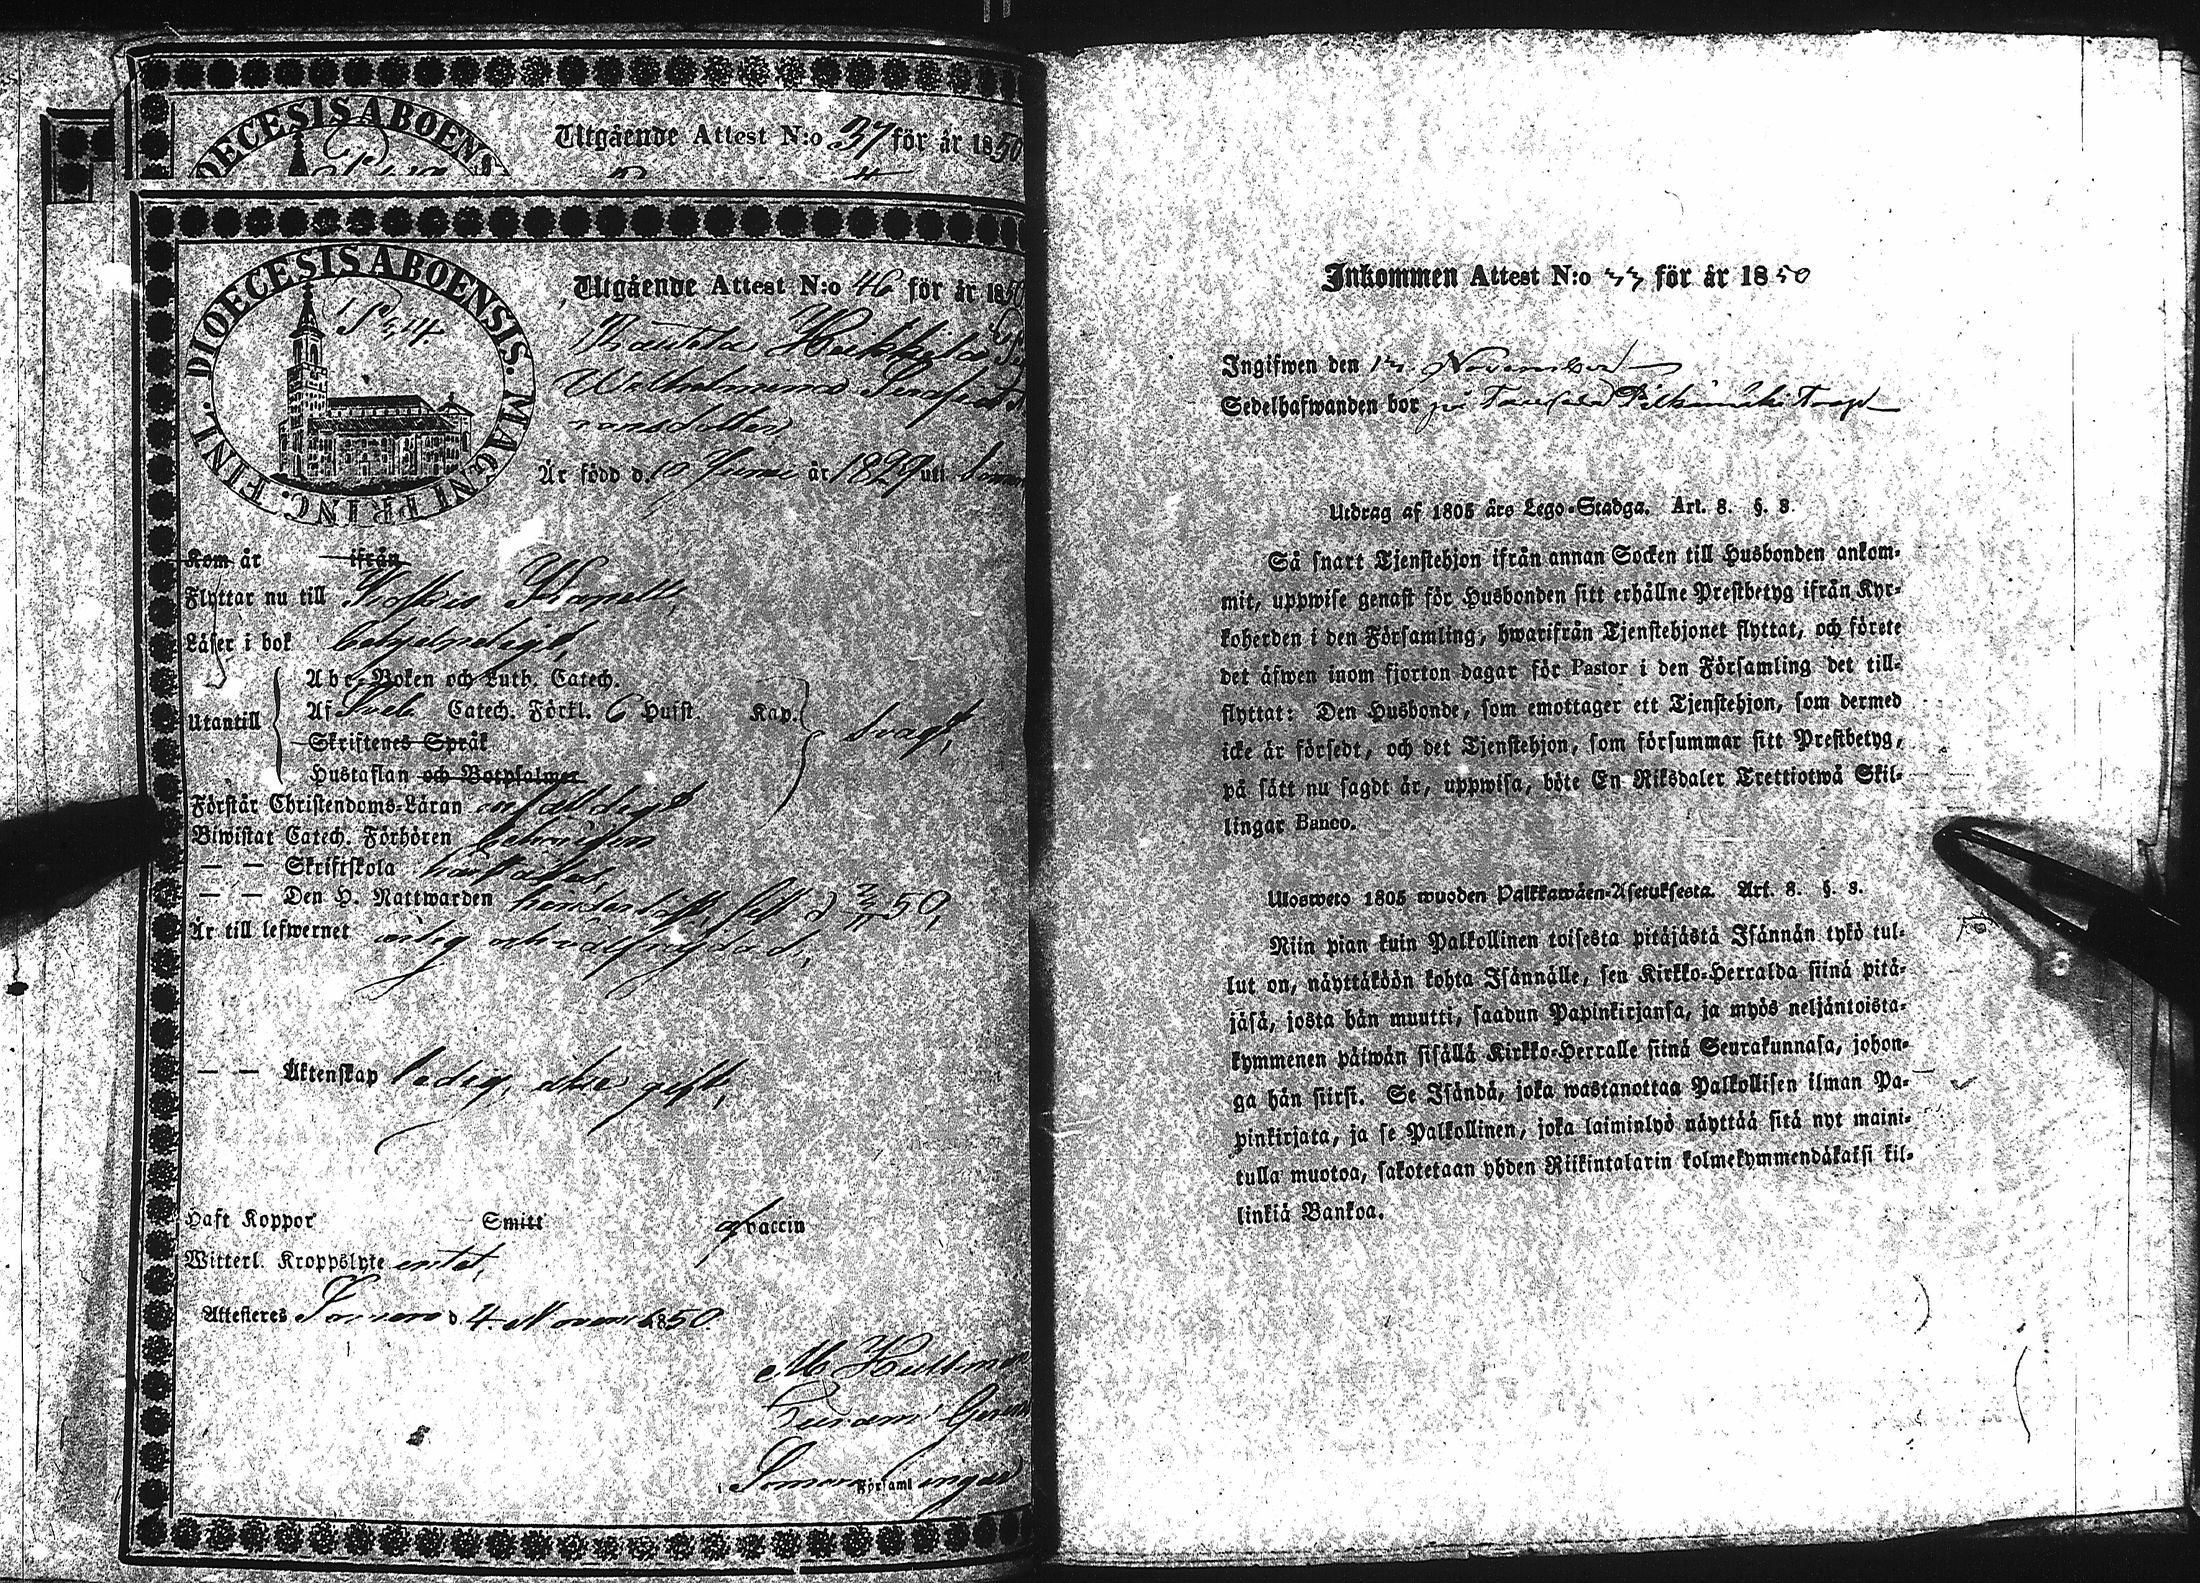 DIOECESIS ABOENS
Utgående Attest N:o 37 för år 1850
DIOECESIS ABOENSIS. MAGNI PRINC. FINL.
P. 314.
Utgående Attest N:o 46 för år 1850
Hakkola
Wilhelmina
Är född d. 10 Junii år 1829 uti Somero
Kom år ifrån
Flyttar nu till Koskis Kapell,
Läser i bok behjelpeligt,
Utantill
Abc-Boken och Luth. Catech.
Af Sveb. Catech. Förkl. 6 Hufst. Kap. svagt,
Skriftenes Språk
Hustaflan och Botpsalmer
Förstår Christendoms-Läran enfaldigt
Biwistat Catech. Förhören behörigen
— — Skriftskola har åtnt.
— — Den H. Nattwarden hinderlöst, sist d 3/11 50,
Är till lefwernet ärlig och välfrejdad,
— — Äktenskap ledig, icke gift,
Haft Koppor Smitt af vaccin
Witterl. Kroppslyte intet,
Attesteres Somero d. 4 Novem 1850.
M Hultm
i Somero Församl ingar
Inkommen Attest N:o 33 för år 1850
Ingifwen den 13 November
Sedelhafwanden bor på Torp
Utdrag af 1805 års Lego-Stadga. Art. 8. §. 8.
Så snart Tjenstehjon ifrån annan Socken till Husbonden ankom-
mit, uppwise genast för Husbonden sitt erhållne Prestbetyg ifrån Kyr-
koherden i den Församling, hwarifrån Tjenstehjonet flyttat, och förete
det äfwen inom fjorton dagar för Pastor i den Församling det till-
flyttat: Den Husbonde, som emottager ett Tjenstehjon, som dermed
icke är försedt, och det Tjenstehjon, som försummar sitt Prestbetyg,
på sätt nu sagdt är, uppwisa, böte En Riksdaler Trettiotwå Skil-
lingar Banco.
Ulosweto 1805 wuoden Palkkawäen-Asetuksesta. Art. 8. §. 8.
Niin pian kuin Palkollinen toisesta pitäjästä Isännän tykö tul-
lut on, näyttäköön kohta Isännälle, sen Kirkko-Herralda siinä pitä-
jäsä, josta hän muutti, saadun Papinkirjansa, ja myös neljäntoista-
kymmenen päiwän sisällä Kirkko-Herralle siinä Seurakunnasa, johon-
ga hän siirsi. Se Isändä, joka wastanottaa Palkollisen ilman Pa-
pinkirjata, ja se Palkollinen, joka laiminlyö näyttää sitä nyt maini-
tulla muotoa, sakotetaan yhden Riikintalarin kolmekymmendäkaksi kil-
linkiä Bankoa.